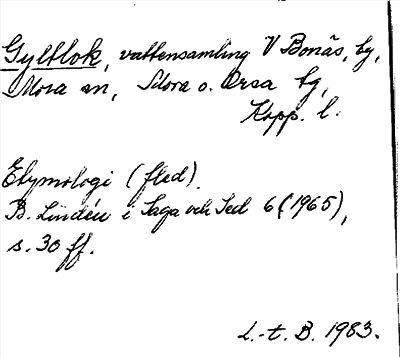 Gyltlok, vattensamling V Bonäs, by,
Mora sn, Mora o. Orsa tg,
Kopp. l.
Etymologi (fled).
B. Lindén i Saga och Sed 6 (1965),
s. 30 ff.
L.-t. B. 1983.